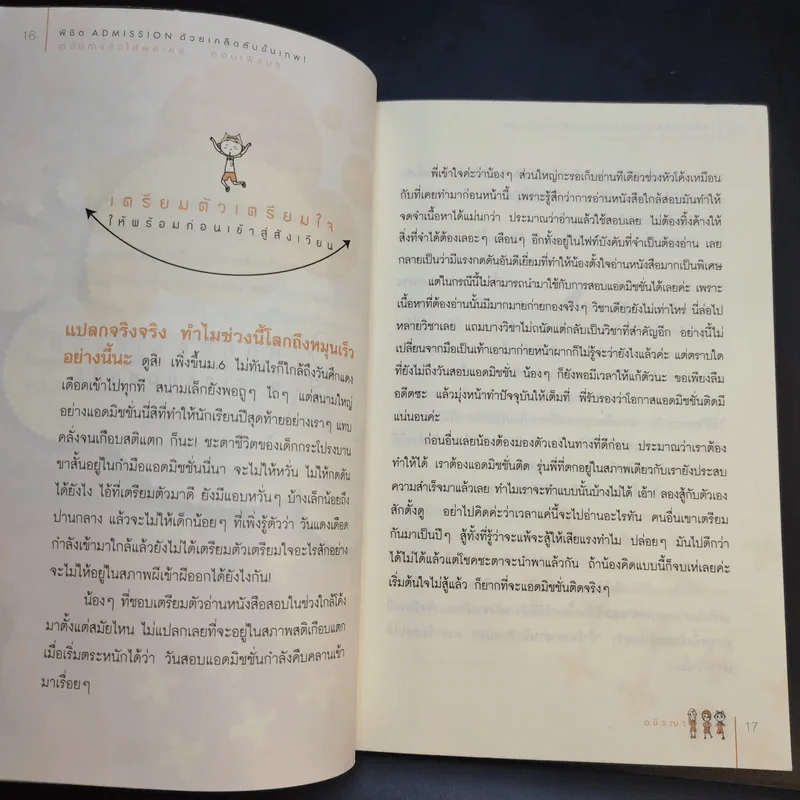 16
พิชิต ADMISSION ด้วยเคล็ดลับขั้นเทพ!
เตรียมตัวเตรียมใจ
ให้พร้อมก่อนเข้าสู่สังเวียน
แปลกจริงจริง ทำไมช่วงนี้โลกถึงหมุนเร็ว
อย่างนี้นะ ดูสิ! เพิ่งขึ้นม.6 ไม่ทันไรก็ใกล้ถึงวันศึกแดง
เดือดเข้าไปทุกที สนามเล็กยังพอถูๆ ไถๆ แต่สนามใหญ่
อย่างแอดมิชชั่นนี่สิที่ทำให้นักเรียนปีสุดท้ายอย่างเราๆ แทบ
คลั่งจนเกือบสติแตก ก็นะ! ชะตาชีวิตของเด็กกระโปรงบาน
ขาสั้นอยู่ในกำมือแอดมิชชั่นนี่นา จะไม่ให้หวั่น ไม่ให้กดดัน
ได้ยังไง ไอ้ที่เตรียมตัวมาดี ยังมีแอบหวั่นๆ บ้างเล็กน้อยถึง
ปานกลาง แล้วจะไม่ให้เด็กน้อยๆ ที่เพิ่งรู้ตัวว่า วันแดงเดือด
กำลังเข้ามาใกล้แล้วยังไม่ได้เตรียมตัวเตรียมใจอะไรสักอย่าง
จะไม่ให้อยู่ในสภาพผีเข้าผีออกได้ยังไงกัน!
น้องๆ ที่ชอบเตรียมตัวอ่านหนังสือสอบในช่วงใกล้โค้ง
มาตั้งแต่สมัยไหน ไม่แปลกเลยที่จะอยู่ในสภาพสติเกือบแตก
เมื่อเริ่มตระหนักได้ว่า วันสอบแอดมิชชั่นกำลังคืบคลานเข้า
มาเรื่อยๆ
พี่เข้าใจค่ะว่าน้องๆ ส่วนใหญ่กะรอเก็บอ่านทีเดียวช่วงหัวโค้งเหมือน
กับที่เคยทำมาก่อนหน้านี้ เพราะรู้สึกว่าการอ่านหนังสือใกล้สอบมันทำให้
จดจำเนื้อหาได้แม่นกว่า ประมาณว่าอ่านแล้วใช้สอบเลย ไม่ต้องทิ้งค้างให้
สิ่งที่จำได้ต้องเลอะๆ เลือนๆ อีกทั้งอยู่ในไฟท์บังคับที่จำเป็นต้องอ่าน เลย
กลายเป็นว่ามีแรงกดดันอันดีเยี่ยมที่ทำให้น้องตั้งใจอ่านหนังสือมากเป็นพิเศษ
แต่ในกรณีนี้ไม่สามารถนำมาใช้กับการสอบแอดมิชชั่นได้เลยค่ะ เพราะ
เนื้อหาที่ต้องอ่านนั้นมีมากมายก่ายกองจริงๆ วิชาเดียวยังไม่เท่าไหร่ นี่ล่อไป
หลายวิชาเลย แถมบางวิชาไม่ถนัดแต่กลับเป็นวิชาที่สำคัญอีก อย่างนี้ไม่
เปลี่ยนจากมือเป็นเท้าเอามาก่ายหน้าผากก็ไม่รู้จะว่ายังไงแล้วค่ะ แต่ตราบใด
ที่ยังไม่ถึงวันสอบแอดมิชชั่น น้องๆ ก็ยังพอมีเวลาให้แก้ตัวนะ ขอเพียงลืม
อดีตซะ แล้วมุ่งหน้าทำปัจจุบันให้เต็มที่ พี่รับรองว่าโอกาสแอดมิชชั่นติดมี
แน่นอนค่ะ
ก่อนอื่นเลยน้องต้องมองตัวเองในทางที่ดีก่อน ประมาณว่าเราต้อง
ทำให้ได้ เราต้องแอดมิชชั่นติด รุ่นพี่ที่ตกอยู่ในสภาพเดียวกับเรายังประสบ
ความสำเร็จมาแล้วเลย ทำไมเราจะทำแบบนั้นบ้างไม่ได้ เอ้า! ลองสู้กับตัวเอง
สักตั้งดู อย่าไปคิดค่ะว่าเวลาแค่นี้จะไปอ่านอะไรทัน คนอื่นเขาเตรียม
กันมาเป็นปีๆ สู้ทั้งที่รู้ว่าจะแพ้จะสู้ให้เสียแรงทำไม ปล่อยๆ มันไปดีกว่า
ได้ไม่ได้แล้วแต่โชคชะตาจะนำพาแล้วกัน ถ้าน้องคิดแบบนี้ก็จบเห่เลยค่ะ
เริ่มต้นใจไม่สู้แล้ว ก็ยากที่จะแอดมิชชั่นติดจริงๆ
อชิรญา
17